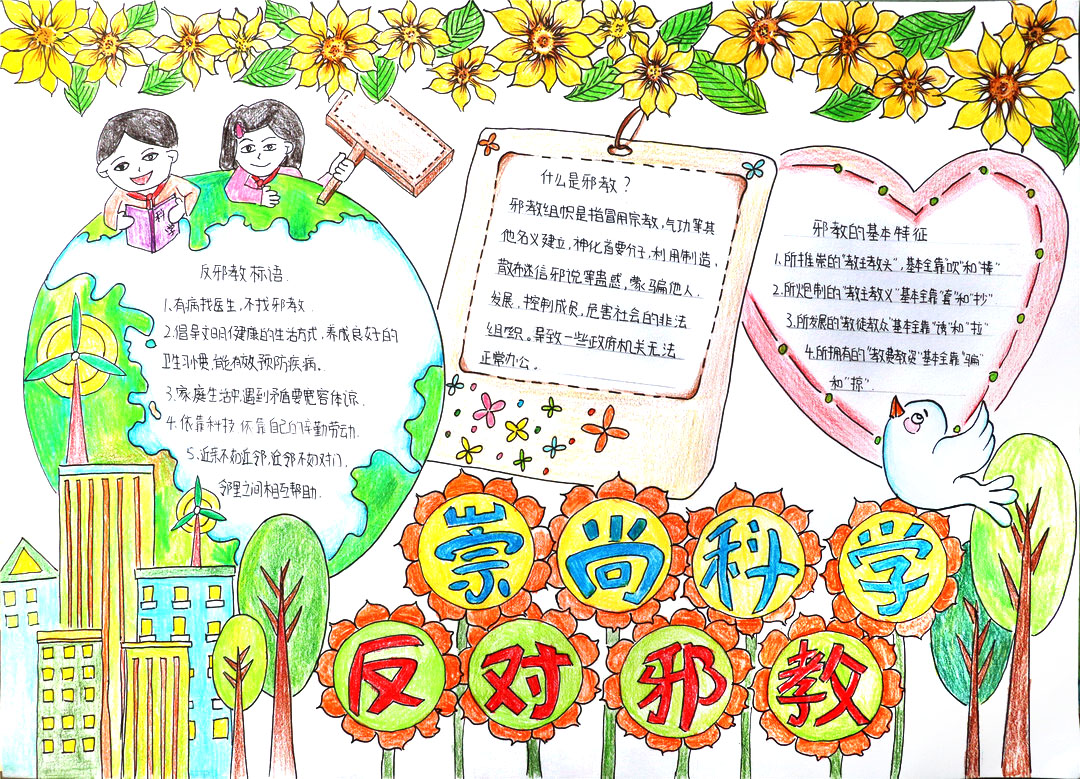 科学
反邪教标语.
1.有病找医生,不找邪教.
2.倡导文明健康的生活方式,养成良好的
卫生习惯,能有效预防疾病.
3.家庭生活中,遇到矛盾要宽容体谅.
4.依靠科技 依靠自己的辛勤劳动.
5.远亲不如近邻,近邻不如对门,
邻里之间相互帮助.
什么是邪教?
邪教组织是指冒用宗教,气功等其
他名义建立,神化首要分子,利用制造、
散布迷信邪说等蛊感,蒙骗他人.
发展、控制成员,危害社会的非法
组织。导致一些政府机关无法
正常办公。
邪教的基本特征
1.所推崇的"教主教头",基本全靠"吹"和"捧"
2.所炮制的"教主教义"基本全靠"套"和"抄"
3.所发展的"教徒教众"基本全靠"诱"和"拉"
4.所拥有的"教费教资"基本全靠"骗"
和"掠".
崇尚科学
反对邪教